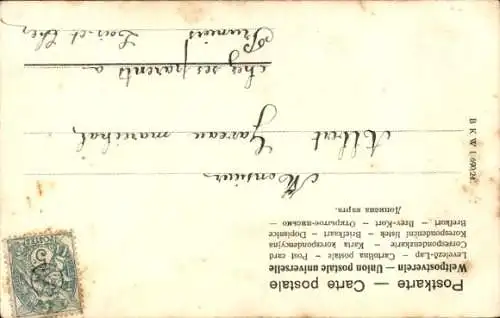 Postkarte — Carte postale
Weltpostverein — Union postale universelle
Levelező-Lap — Cartolina postale — Post card
Correspondenzkarte — Karta korespondencyjna
Korespondenční lístek — Briefkaart — Dopisnice
Brefkort — Brev-Kort — Открытое письмо —
Дописна карта.
Monsieur
Albert Gareau marechal,
chez ses parents a
Pruniers
Loir et Cher
B. K. W. I. 690/24